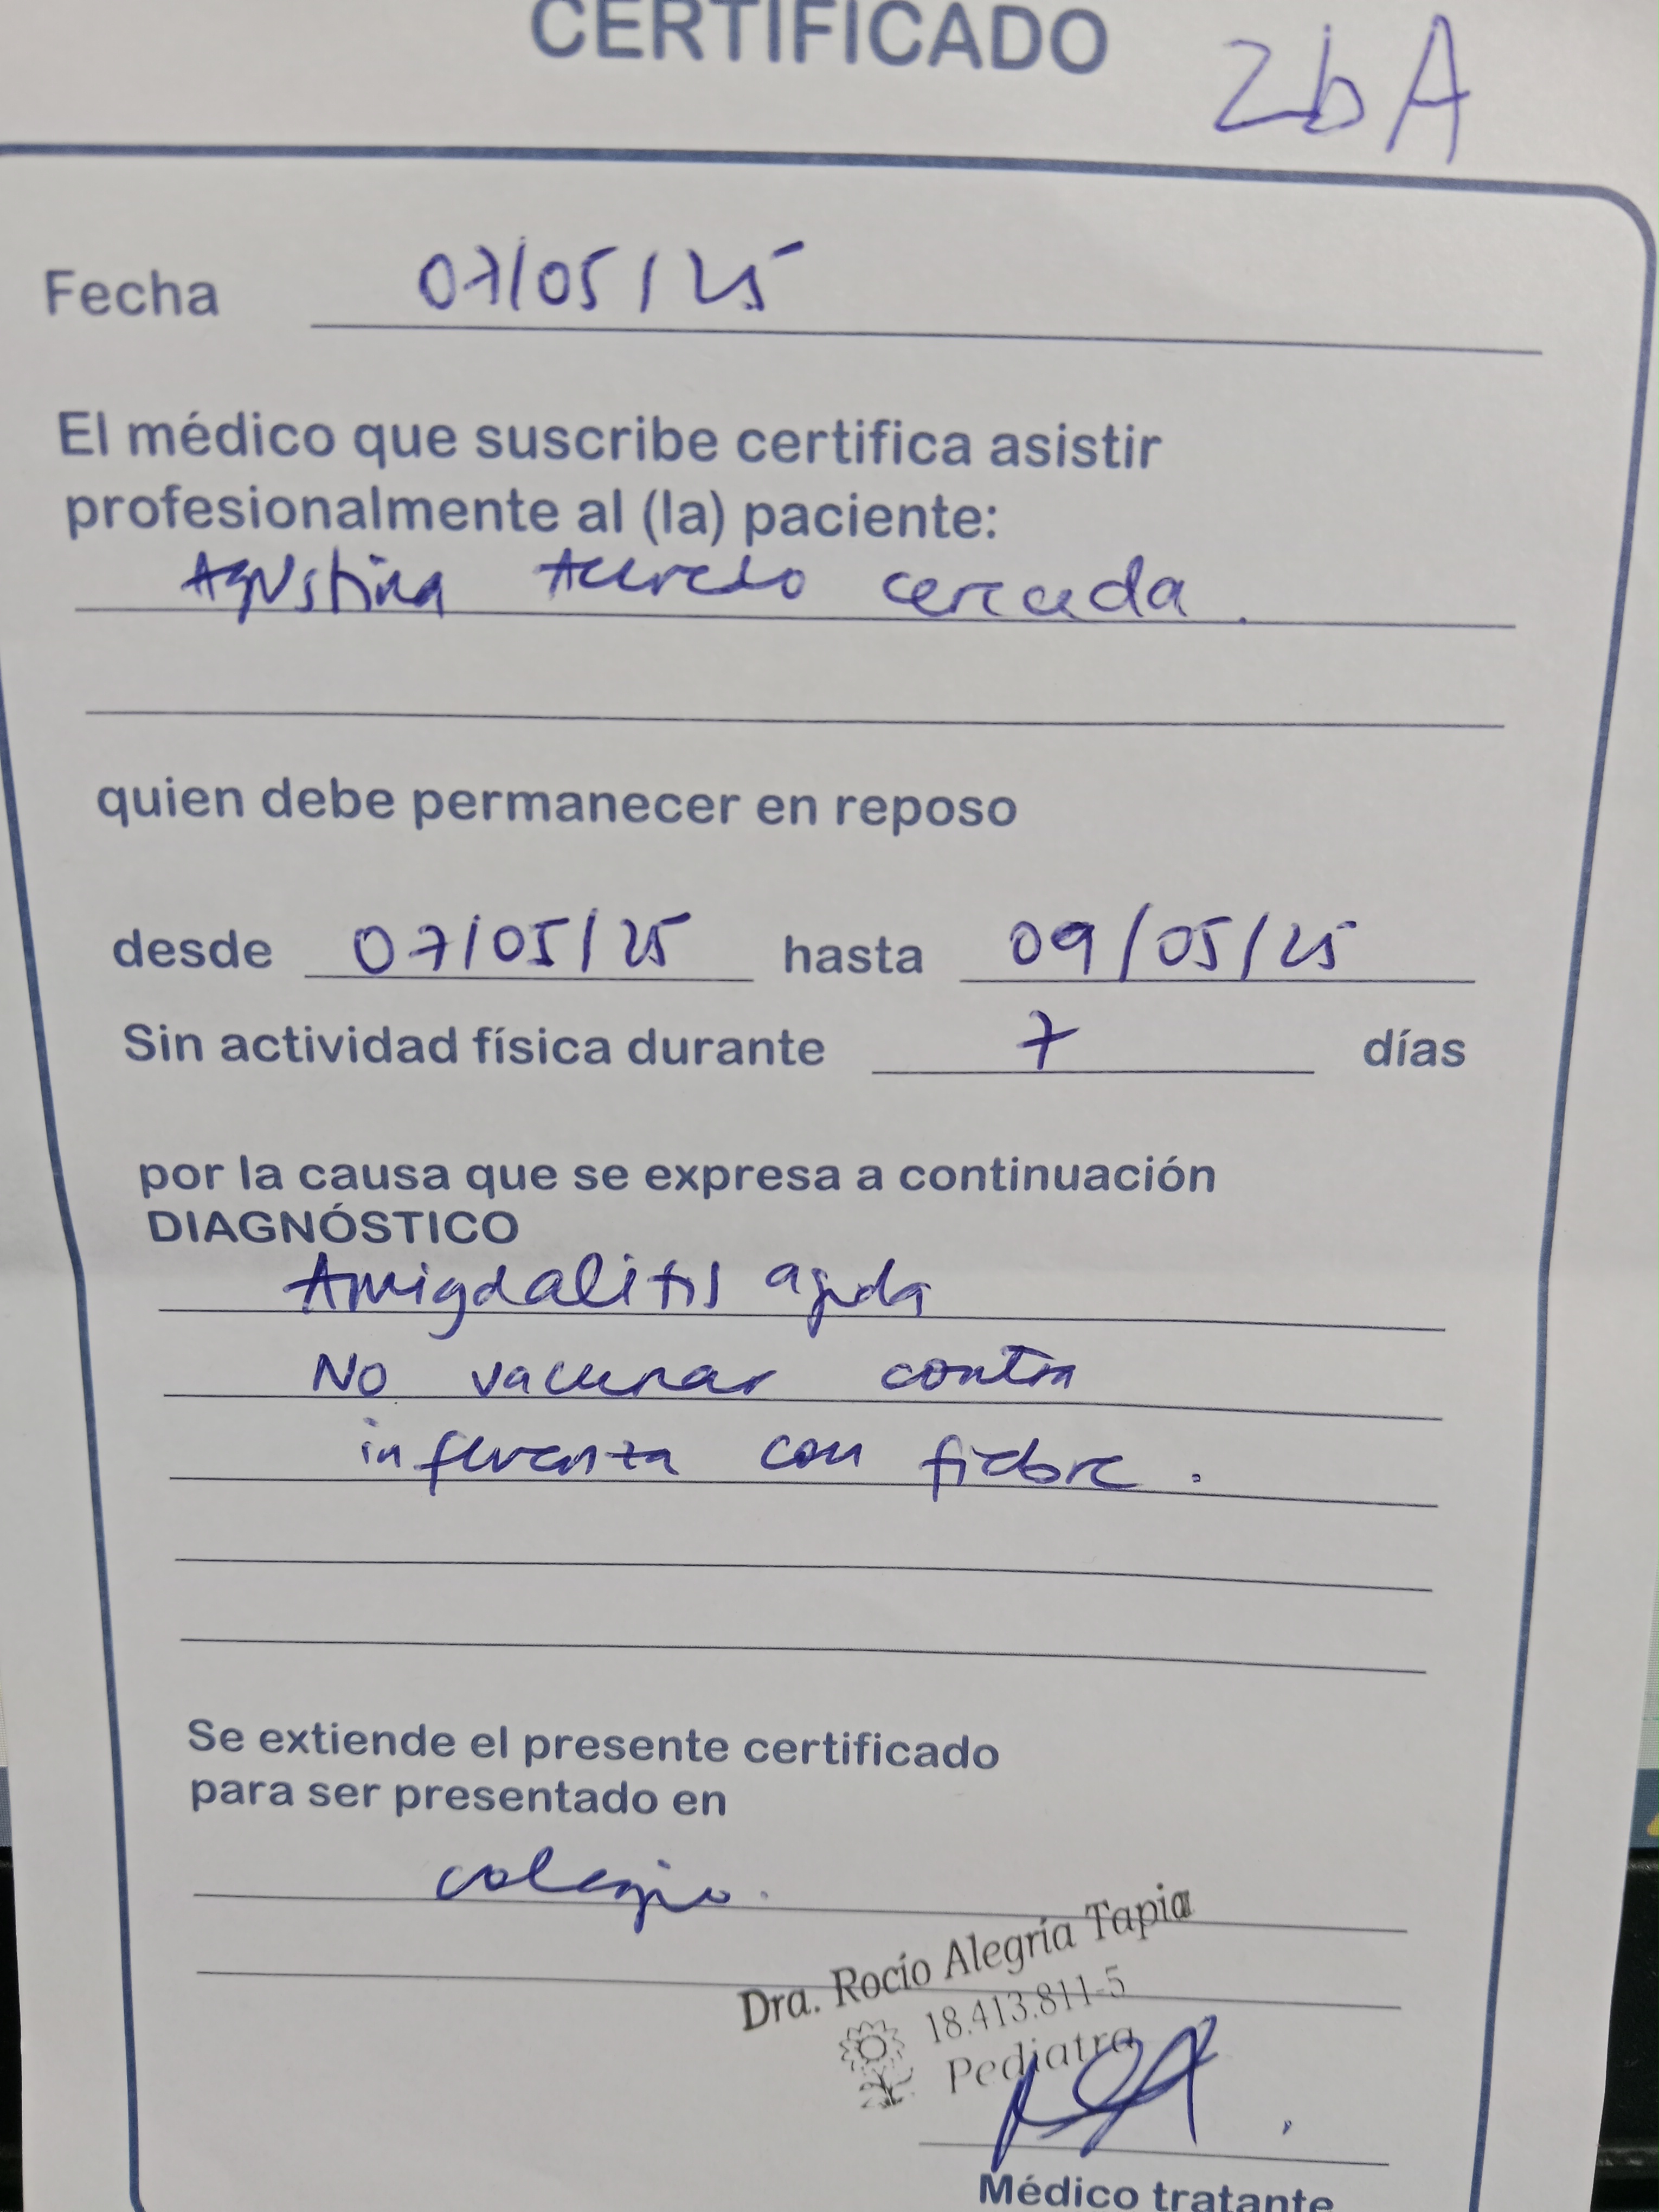 CERTIFICADO
2b A
Fecha 07/05/25
El médico que suscribe certifica asistir
profesionalmente al (la) paciente:
Agustina Acevedo
quien debe permanecer en reposo
desde 07/05/25 hasta 09/05/25
Sin actividad física durante 7 días
por la causa que se expresa a continuación
DIAGNÓSTICO
Amigdalitis aguda
No vacunar contra
influenza con fiebre.
Se extiende el presente certificado
para ser presentado en
colegio.
Dra. Rocío Alegría Tapia
18.413.811-5
Pediatra
Médico tratante